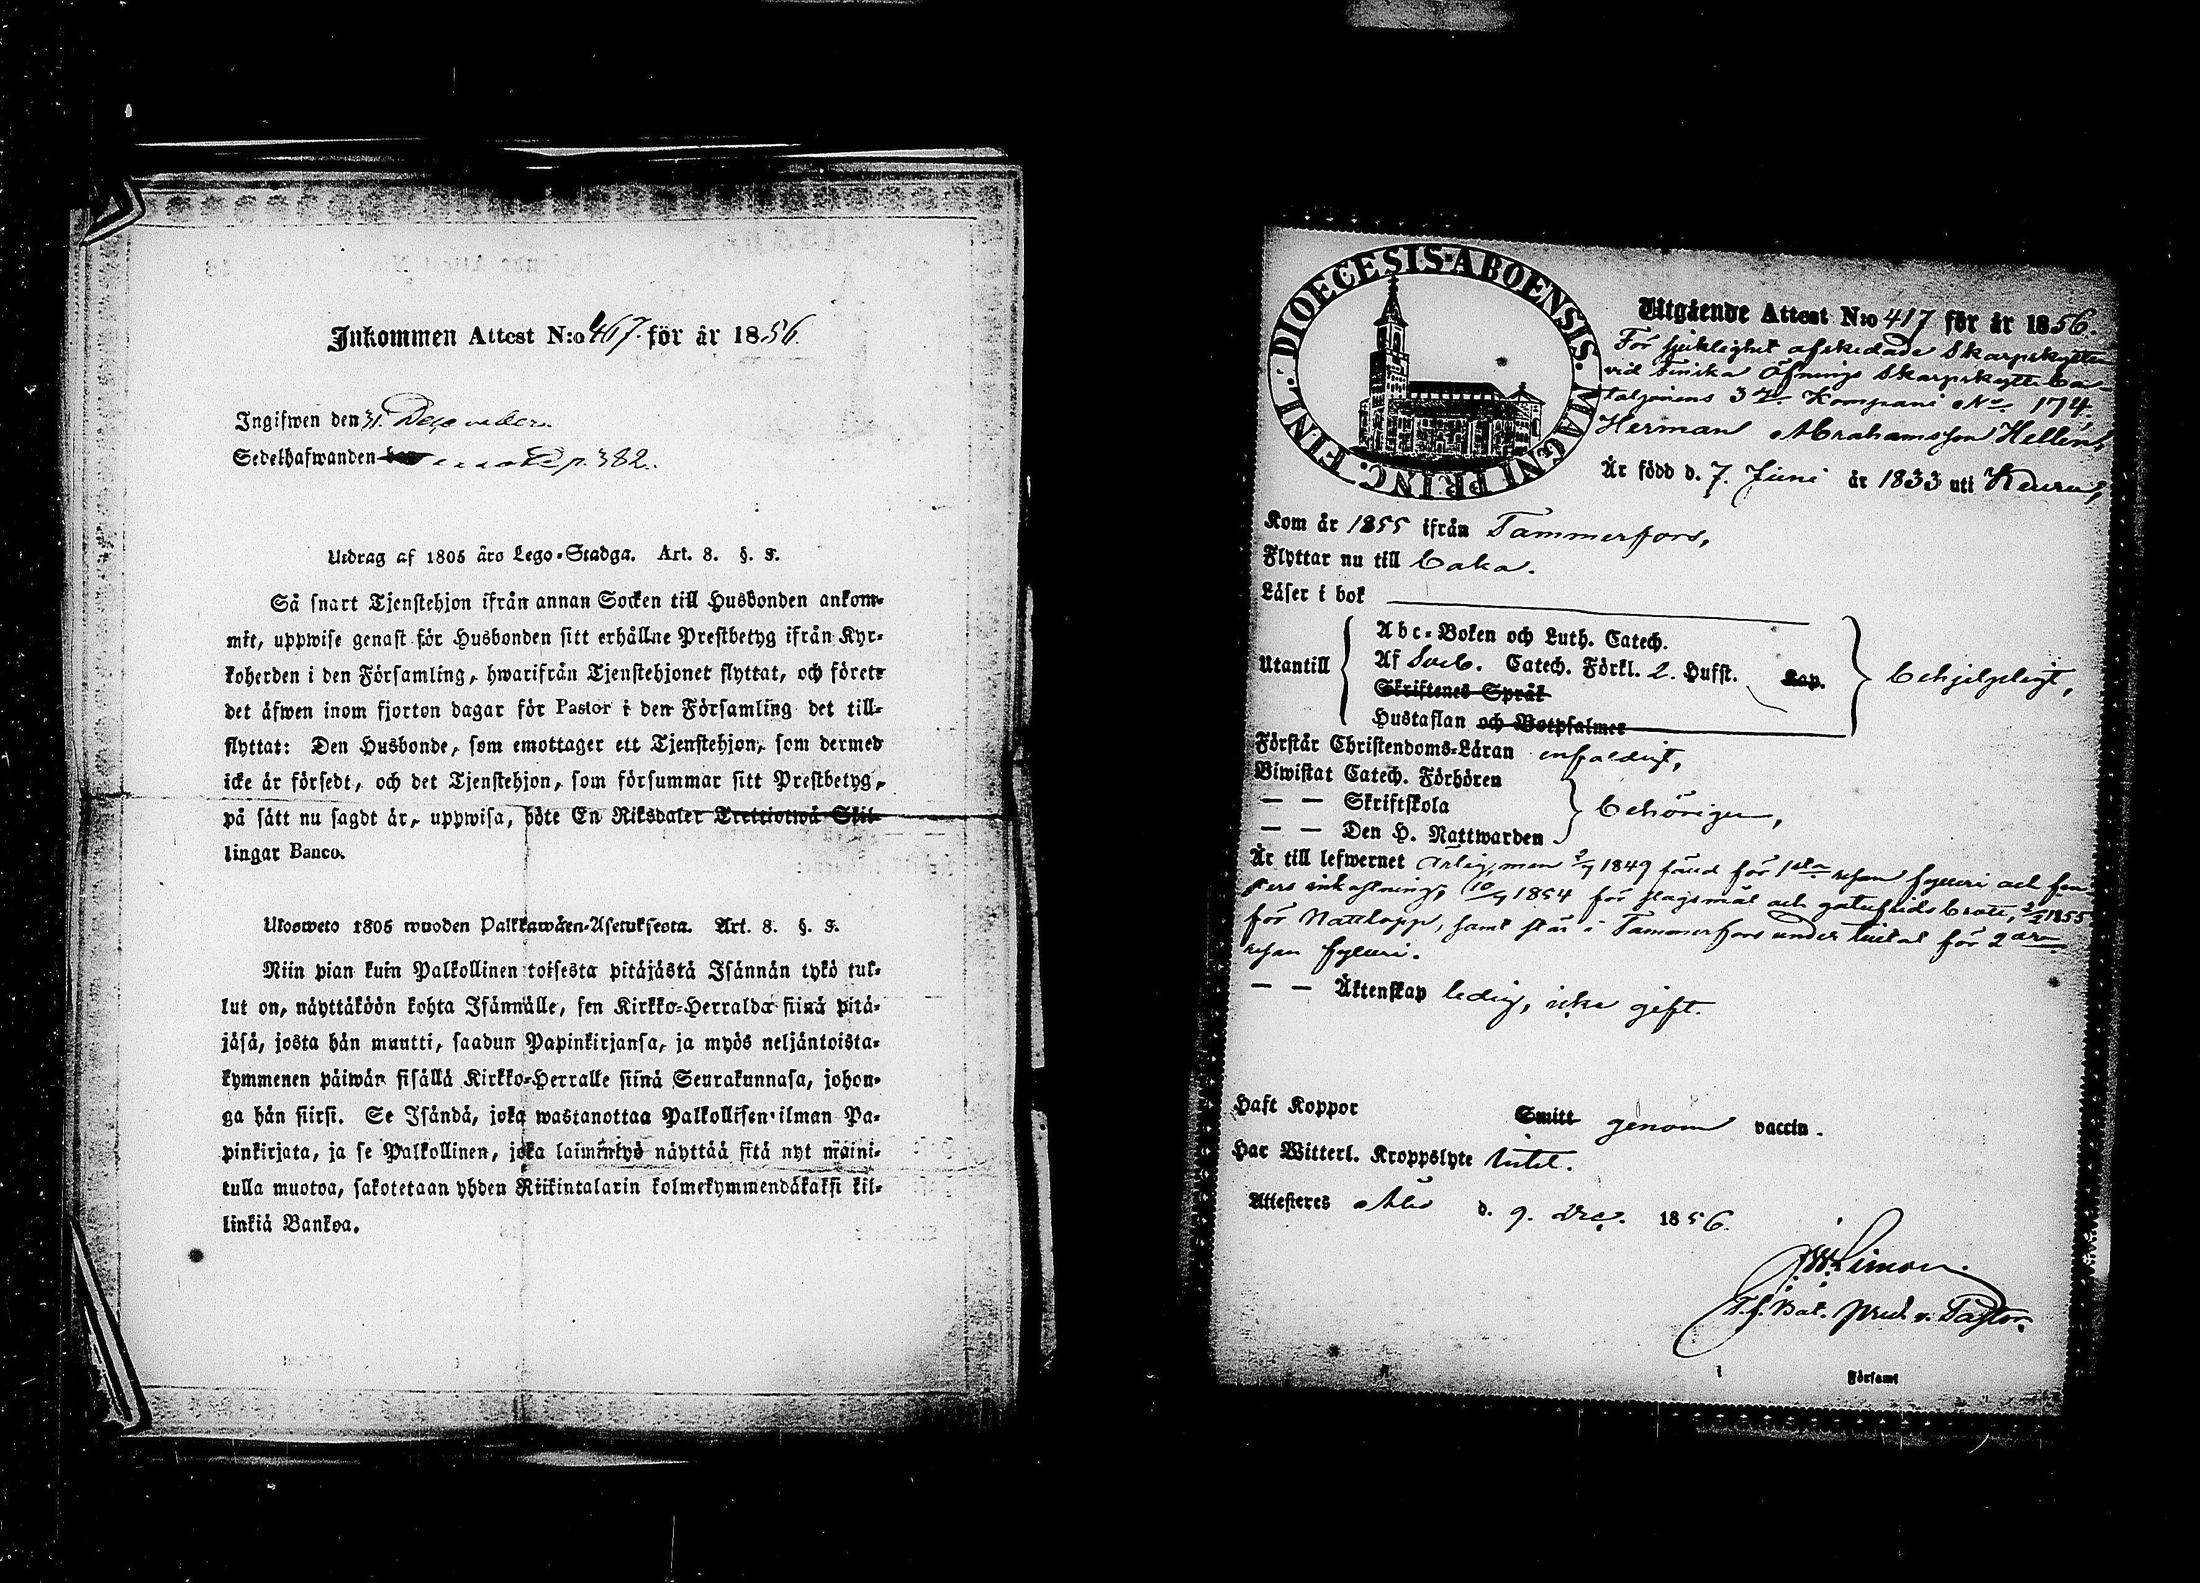 Inkommen Attest N:o 467. för år 1856.
Ingifwen den 31. December.
Sedelhafwanden p. 382.
Utdrag af 1805 års Lego-Stadga. Art. 8. §. 8.
Så snart Tjenstehjon ifrån annan Socken till Husbonden ankom-
mit, uppwise genast för Husbonden sitt erhållne Prestbetyg ifrån Kyr-
koherden i den Församling, hwarifrån Tjenstehjonet flyttat, och förete
det äfwen inom fjorton dagar för Pastor i den Församling det till-
flyttat: Den Husbonde, som emottager ett Tjenstehjon, som dermed
icke är försedt, och det Tjenstehjon, som försummar sitt Prestbetyg,
på sätt nu sagdt är, uppwisa, böte En Riksdaler Trettiotwå Skil-
lingar Banco.
Ulosweto 1805 wuoden Palkkawäen-Asetuksesta. Art. 8. §. 8.
Niin pian kuin Palkollinen toisesta pitäjästä Isännän tykö tul-
lut on, näyttäköön kohta Isännälle, sen Kirkko-Herralda siinä pitä-
jäsä, josta hän muutti, saadun Papinkirjansa, ja myös neljäntoista-
kymmenen päiwän sisällä Kirkko-Herralle siinä Seurakunnasa, johon-
ga hän siirsi. Se Isändä, joka wastanottaa Palkollisen ilman Pa-
pinkirjata, ja se Palkollinen, joka laiminlyö näyttää sitä nyt maini-
tulla muotoa, sakotetaan yhden Riikintalarin kolmekymmendäkaksi kil-
linkiä Bankoa.
DIOECESIS ABOENSIS. MAGNI PRINC. FINL.
Utgående Attest N:o 417 för år 1856.
För sjuklighet afskedade Skarpskytten
vid Finska Öfnings Skarpskytte Ba-
taljonens 3 Kompani No. 174.
Herman Abrahamsson Hellén,
Är född d. 7. Juni år 1833 uti Keuru,
Kom år 1855 ifrån Tammerfors,
Flyttar nu till
Läser i bok
Abc-Boken och Luth. Catech.
Utantill Af Sveb. Catech. Förkl. 2. Hufst. Kap. behjelpligt,
Skriftenes Språk
Hustaflan och Botpsalmer
Förstår Christendoms-Läran enfaldigt,
Biwistat Catech. Förhören
— — Skriftskola behörigen,
— — Den H. Nattwarden
Är till lefwernet ärlig, men 1849 för 1sta resan fylleri och fön-
sters inkastning, 10/4 1854 för slagsmål och gatufridsbrott, 1855
för Nattlopp, samt står i Tammerfors under tilltal för 2 dra
resan fylleri.
— — Äktenskap ledig, icke gift.
Haft Koppor Smitt genom vaccin.
Har Witterl. Kroppslyte intet.
Attesteres Åbo d. 9. Dec. 1856.
T.f. Bat. Pred. o. Pastor.
Församl